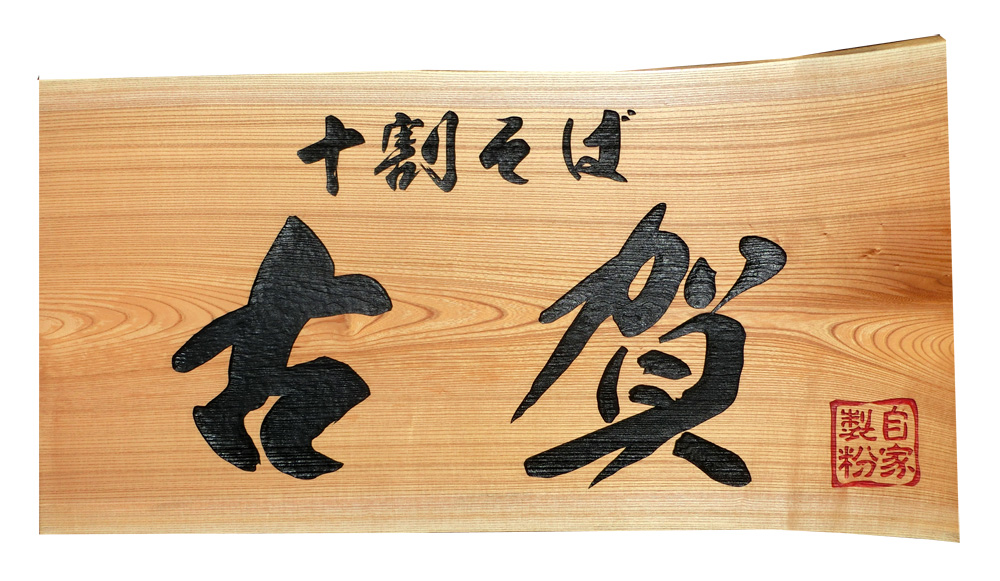 十割そば
古賀
自家
製粉